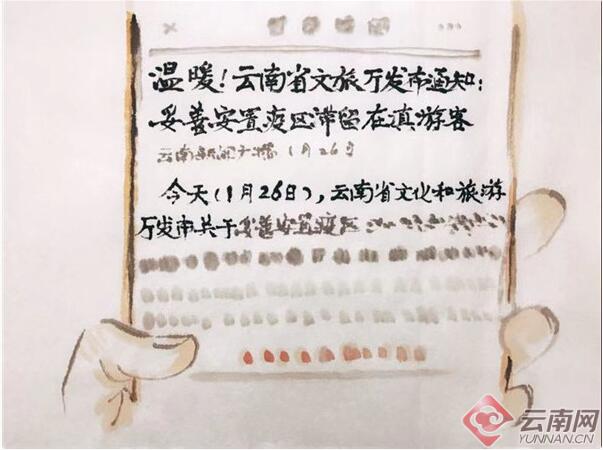 温暖！云南省文旅厅发布通知：
妥善安置疫区滞留在滇游客
1月26日
今天(1月26日)，云南省文化和旅游
厅发布关于妥善安置疫区
云南网
YUNNAN.CN